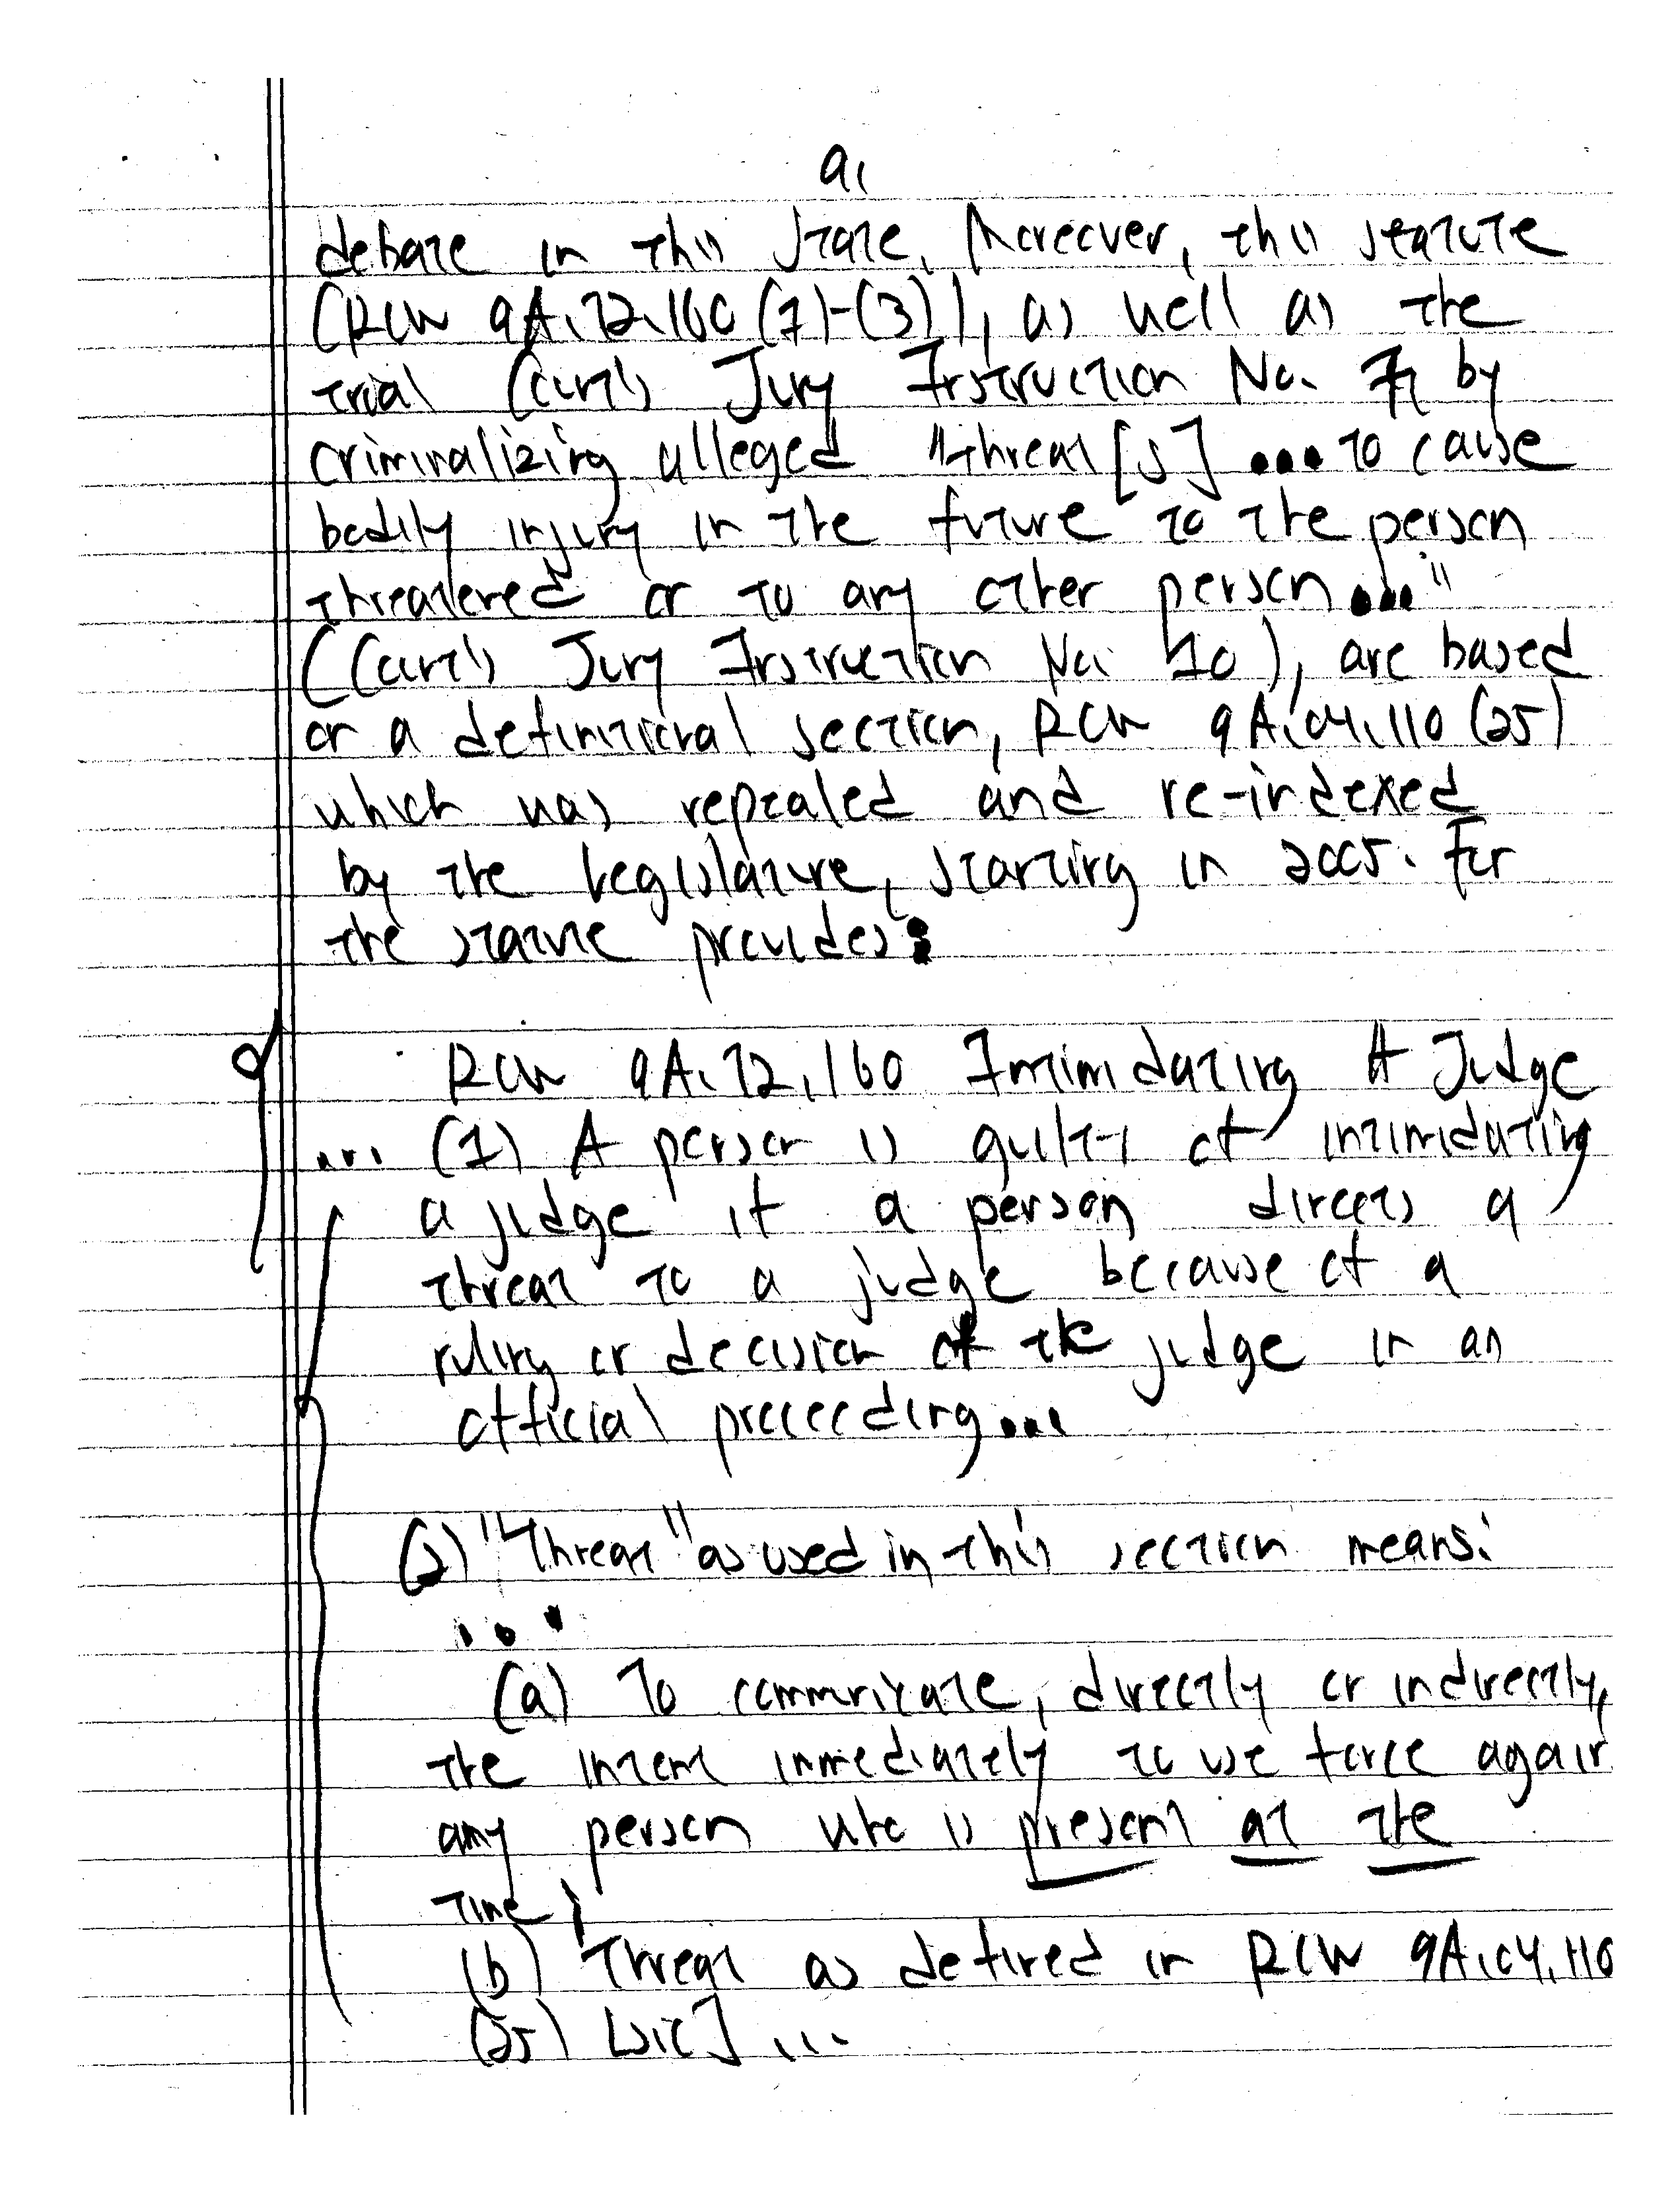 9.
debate in this State. Moreover, this statute
(RCW 9A.72.160 (1)-(3)), as well as the
trial Court's Jury Instruction No. 7, by
criminalizing alleged "threat[s] ... to cause
bodily injury in the future to the person
threatened or to any other person..."
(Court's Jury Instruction No. 10), are based
on a definitional section, RCW 9A.04.110 (25)
which was repealed and re-indexed
by the Legislature, starting in 2005. For
the statute provides:
RCW 9A.72.160 Intimidating A Judge
... (1) A person is guilty of intimidating
a judge if a person directs a
threat to a judge because of a
ruling or decision of the judge in an
official proceeding...
(2) "Threat" as used in this section means:
...
(a) To communicate, directly or indirectly,
the intent immediately to use force again
any person who is present at the
time;
(b) Threat as defined in RCW 9A.04.110
(25) [sic] ...